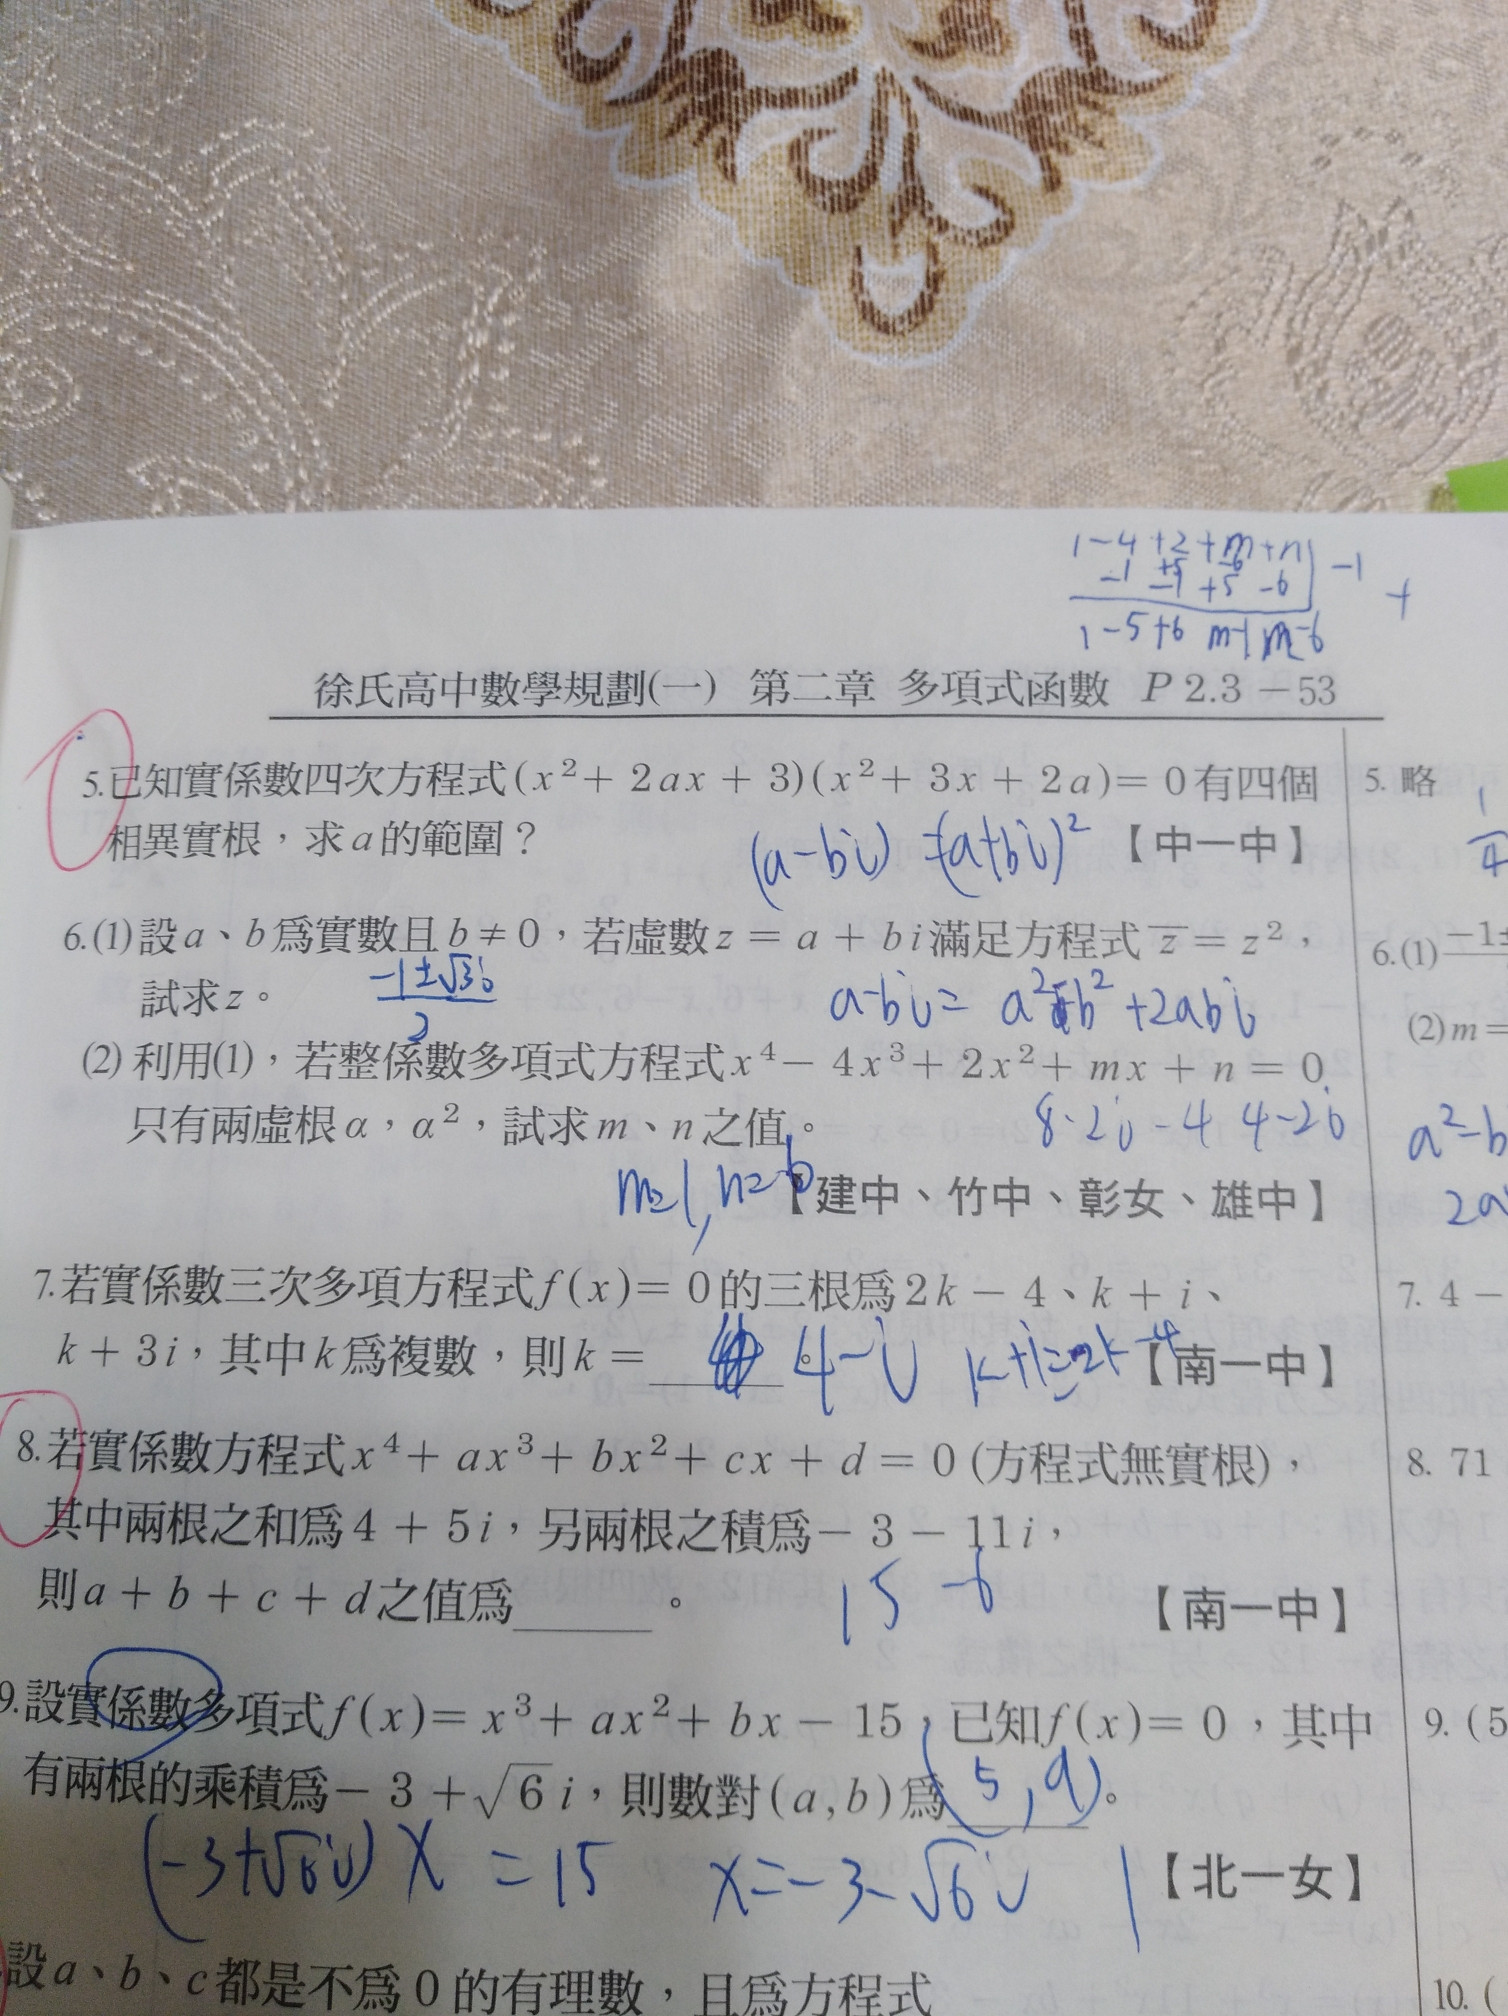 1-4+2+m+n | -1
-1 +5 -6
-1 +5 -6 +
1-5+6 m-1 n-6
徐氏高中數學規劃(一) 第二章 多項式函數 P 2.3 -53
5.已知實係數四次方程式(x²+ 2ax + 3)(x²+ 3x + 2a)= 0有四個
相異實根，求a的範圍？
【中一中】
(a-bi) =(a+bi)²
6.(1)設a、b爲實數且b ≠ 0，若虛數z = a + bi滿足方程式 z̅ = z²，
試求z。
-1±√3i
2
a-bi= a²-b²+2abi
(2) 利用(1)，若整係數多項式方程式x⁴- 4x³+ 2x²+ mx + n = 0
只有兩虛根α，α²，試求m、n之值。
8-2i-4 4-2i
m=1, n=6
【建中、竹中、彰女、雄中】
7.若實係數三次多項方程式f(x)= 0的三根爲2k - 4、k + i、
k + 3i，其中k爲複數，則k = ______。
4-i k+i=2k-4
【南一中】
8.若實係數方程式x⁴+ ax³+ bx²+ cx + d = 0 (方程式無實根)，
其中兩根之和爲4 + 5i，另兩根之積爲- 3 - 11i，
則a + b + c + d之值爲______。
15 -6
【南一中】
9.設實係數多項式f(x)= x³+ ax²+ bx - 15，已知f(x)= 0，其中
有兩根的乘積爲- 3 +√6 i，則數對(a,b)爲______。
(5,9)
(-3+√6i) x = 15 x=-3-√6i
【北一女】
設a、b、c都是不爲0的有理數，且爲方程式
5. 略
1
4
6.(1) -1±
(2)m=
a²-b
2a
7. 4 -
8. 71
9. (5
10. (